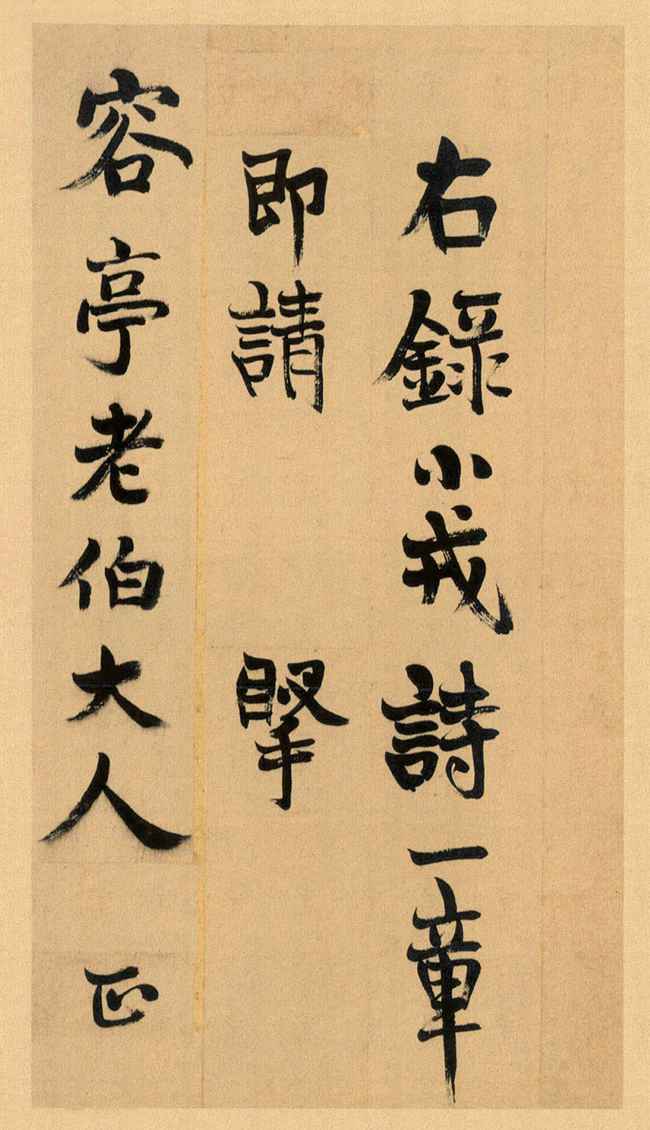 右錄小戎詩一章
即請 掔
容亭老伯大人 正